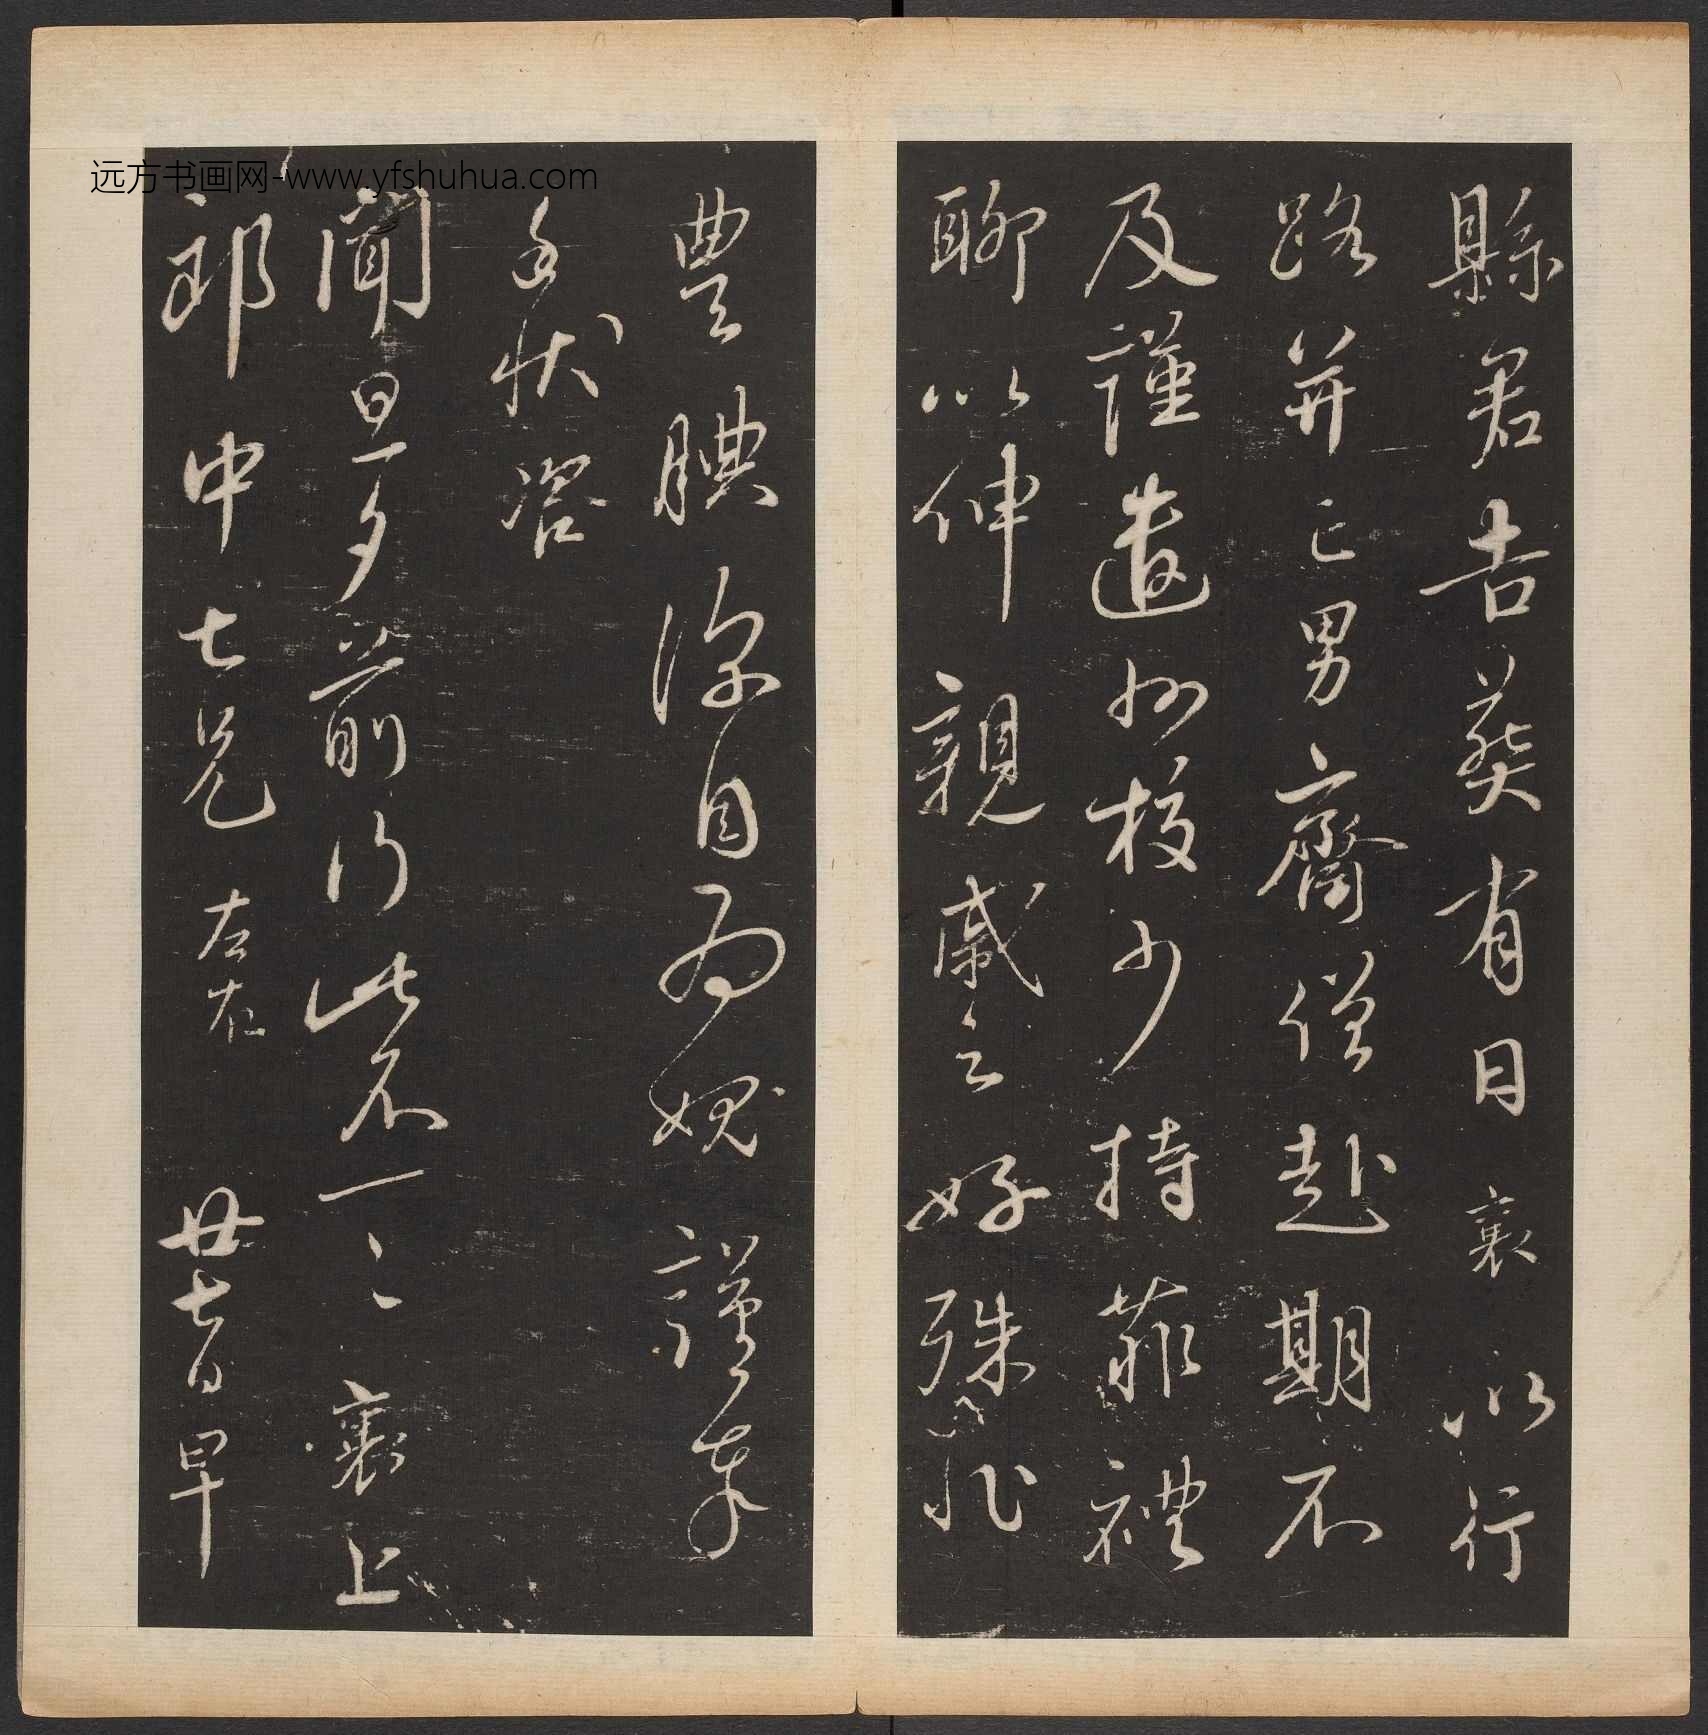 縣君吉葬有日襄以行
路并亡男齋僧赴期不
及謹遣州校少持菲禮
聊以伸親戚之好殊非
豐腆深自為媿謹奉
手狀咨
聞旦夕前行此不一一襄上
郎中七兄左右 廿七日早
远方书画网-www.yfshuhua.com